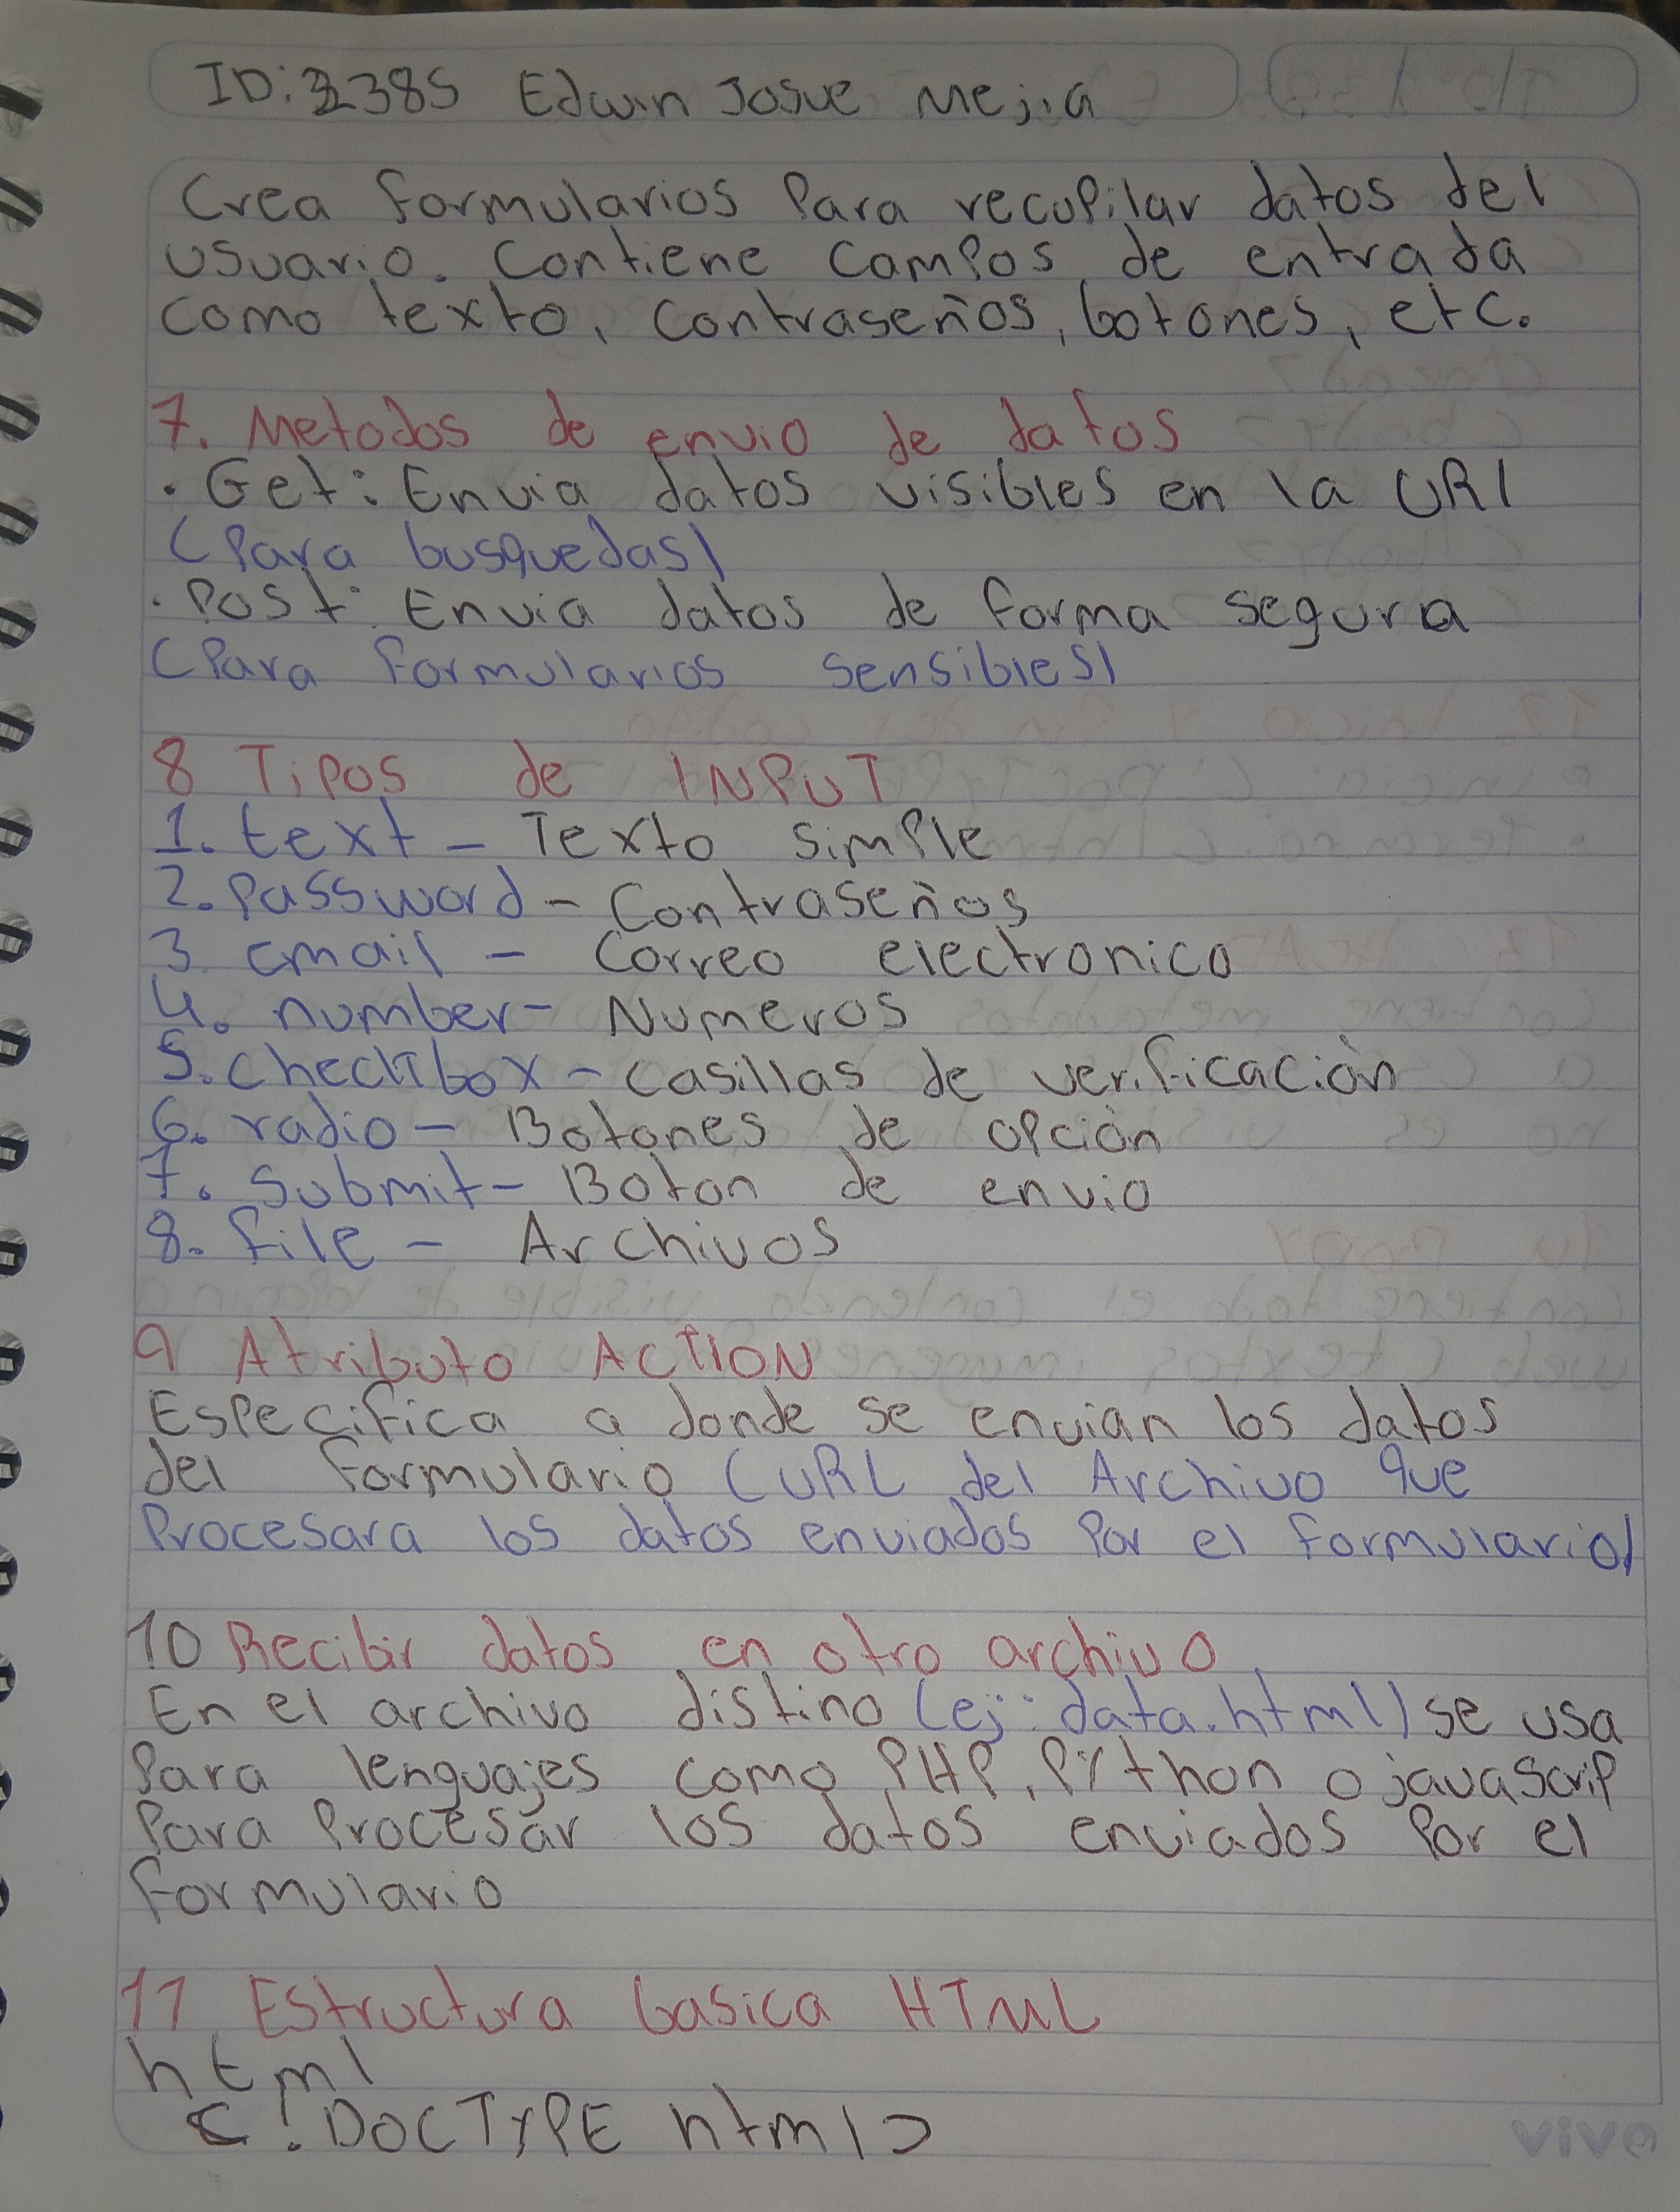 ID: 2385 Edwin Josue Mejia
Crea formularios Para recopilar datos del
usuario. Contiene campos de entrada
como texto, contraseños, botones, etc.
7. Metodos de envio de datos
· Get: Envia datos visibles en la URl
(Para busquedas)
· Post: Envia datos de forma segura
(Para formularios sensibles)
8 Tipos de INPUT
1. text - Texto simple
2. Password - Contraseños
3. email - Correo electronico
4. number - Numeros
5. checkbox - casillas de verificación
6. radio - Botones de opción
7. Submit - Boton de envio
8. file - Archivos
9 Atributo ACTION
Especifica a donde se envian los datos
del formulario (URL del Archivo que
Procesara los datos enviados Por el formulario)
10 Recibir datos en otro archivo
En el archivo distino (ej: data.html) se usa
Para lenguajes como PHP, Python o javaScrip
Para Procesar los datos enviados Por el
formulario
11 Estructura basica HTML
html
<!DOCTYPE html>
vivo